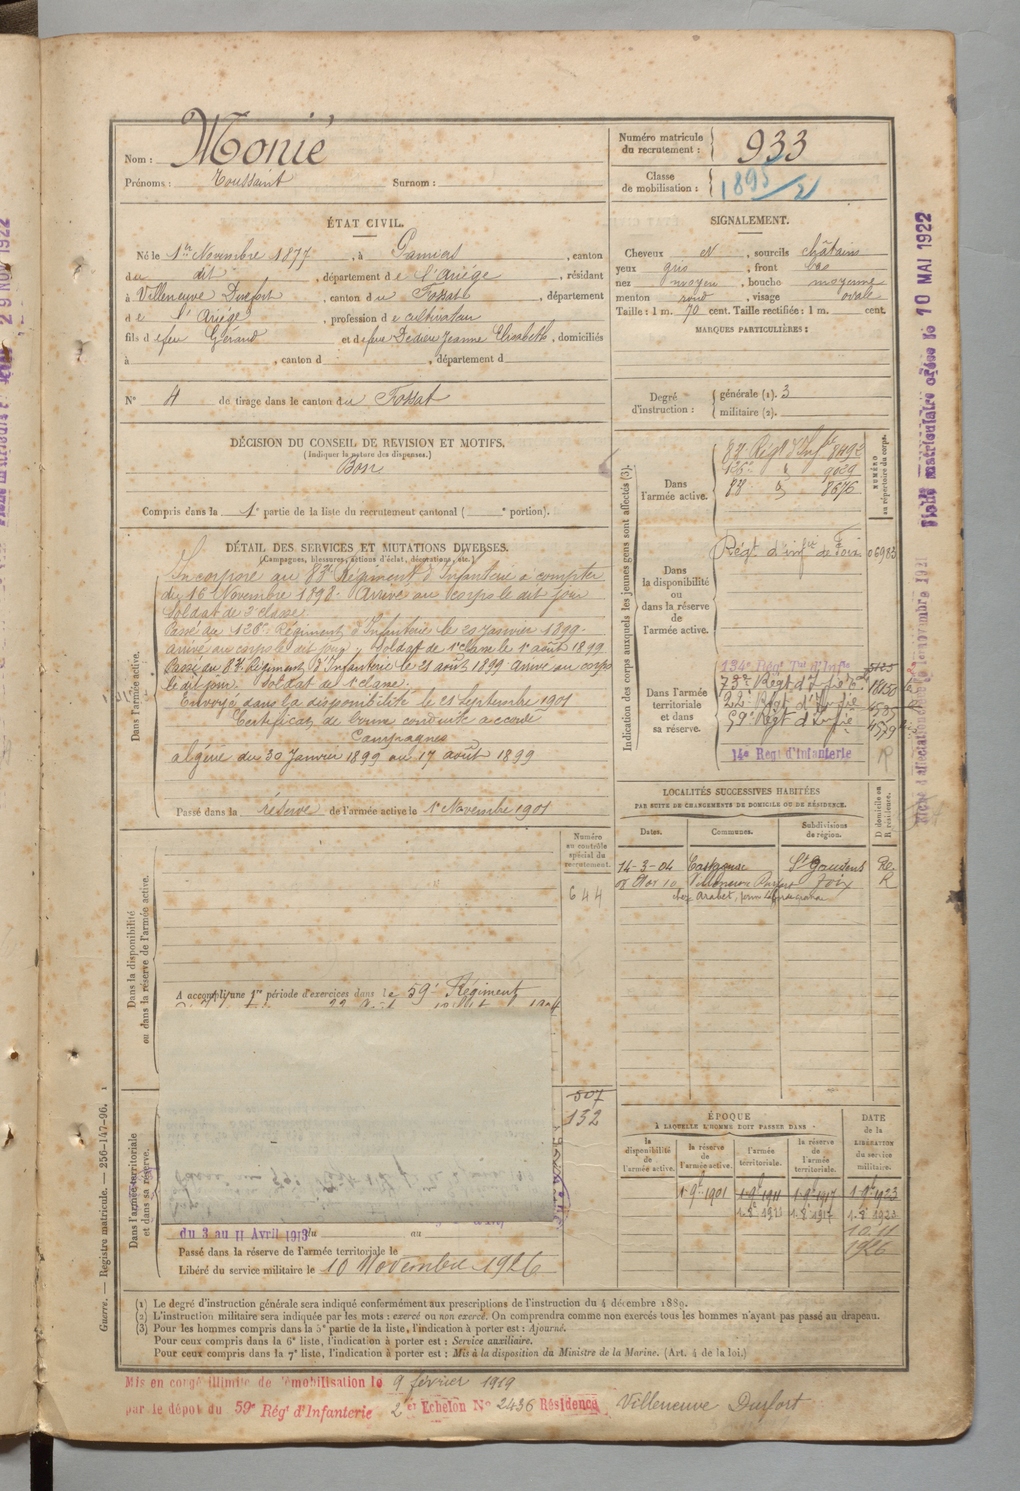 Nom : Monié
Prénoms : Toussaint Surnom :
Numéro matricule du recrutement : 933
Classe de mobilisation : 1895/2
ÉTAT CIVIL.
Né le 1er Novembre 1877, à Pamiers, canton
du dit, département de l'Ariège, résidant
à Villeneuve Durfort, canton du Fossat, département
de l'Ariège, profession de cultivateur
fils de feu Gérard et de feue Dedieu Jeanne Elisabeth, domiciliés
à , canton d , département d
N° 4 de tirage dans le canton du Fossat
SIGNALEMENT.
Cheveux N, sourcils châtains
yeux gris, front bas
nez moyen, bouche moyenne
menton rond, visage ovale
Taille : 1 m. 70 cent. Taille rectifiée : 1 m. cent.
MARQUES PARTICULIÈRES :
Degré d'instruction : générale (1). 3
militaire (2).
DÉCISION DU CONSEIL DE REVISION ET MOTIFS.
(Indiquer la nature des dispenses.)
Bon
Compris dans la 1e partie de la liste du recrutement cantonal ( e portion).
DÉTAIL DES SERVICES ET MUTATIONS DIVERSES.
(Campagnes, blessures, actions d'éclat, décorations, etc.)
Dans l'armée active.
Incorporé au 83e Régiment d'Infanterie à compter
du 16 Novembre 1898. Arrivé au corps le dit jour
Soldat de 2e classe.
Passé au 126e Régiment d'Infanterie le 20 Janvier 1899
Arrivé au corps le dit jour. Soldat de 1e classe le 1e août 1899
Passé au 83e Régiment d'Infanterie le 28 août 1899 Arrivé au corps
le dit jour. Soldat de 1e classe.
Envoyé dans la disponibilité le 21 Septembre 1901
Certificat de bonne conduite accordé
Campagnes
Algérie du 30 Janvier 1899 au 17 août 1899
Passé dans la réserve de l'armée active le 1e Novembre 1901
Indication des corps auxquels les jeunes gens sont affectés (3).
NUMÉRO au répertoire du corps.
Dans l'armée active.
83e Régt d'Infie 8492
126e " 9029
83e " 8676
Dans la disponibilité ou dans la réserve de l'armée active.
Régt d'infie de Foix 06983
Dans l'armée territoriale et dans sa réserve.
134e Rég. Ter. d'Infie
59e Régt d'Infie
14e Rég. d'Infanterie R
LOCALITÉS SUCCESSIVES HABITÉES
PAR SUITE DE CHANGEMENTS DE DOMICILE OU DE RÉSIDENCE.
Dates. Communes. Subdivisions de région. D domicile ou R résidence.
14-3-04 St Gaudens Re
Villeneuve Durfort Foix R
Numéro au contrôle spécial du recrutement.
644
Dans la disponibilité ou dans la réserve de l'armée active.
A accompli une 1re période d'exercices dans le 59e Régiment
507
132
Dans l'armée territoriale et dans sa réserve.
du 3 au 11 Avril 1913 du au
Passé dans la réserve de l'armée territoriale le
Libéré du service militaire le 10 Novembre 1926
ÉPOQUE
À LAQUELLE L'HOMME DOIT PASSER DANS
la disponibilité de l'armée active. la réserve de l'armée active. l'armée territoriale. la réserve de l'armée territoriale.
DATE de la LIBÉRATION du service militaire.
1-9e 1901 1-9e 1911 1-9e 1917 1-9e 1923
1-8e 1921 1-8e 1917 1-8e 1923
10 11 1926
(1) Le degré d'instruction générale sera indiqué conformément aux prescriptions de l'instruction du 4 décembre 1889.
(2) L'instruction militaire sera indiquée par les mots : exercé ou non exercé. On comprendra comme non exercés tous les hommes n'ayant pas passé au drapeau.
(3) Pour les hommes compris dans la 5e partie de la liste, l'indication à porter est : Ajourné.
Pour ceux compris dans la 6e liste, l'indication à porter est : Service auxiliaire.
Pour ceux compris dans la 7e liste, l'indication à porter est : Mis à la disposition du Ministre de la Marine. (Art. 4 de la loi.)
Mis en congé illimité de démobilisation le 9 février 1919
par le dépôt du 59e Rég' d'Infanterie 2e Echelon N° 2436 Résidence Villeneuve Durfort
Guerre. — Registre matricule. — 256-147-96.
Fiche matriculaire créée le 10 MAI 1922
29 NOV 1922